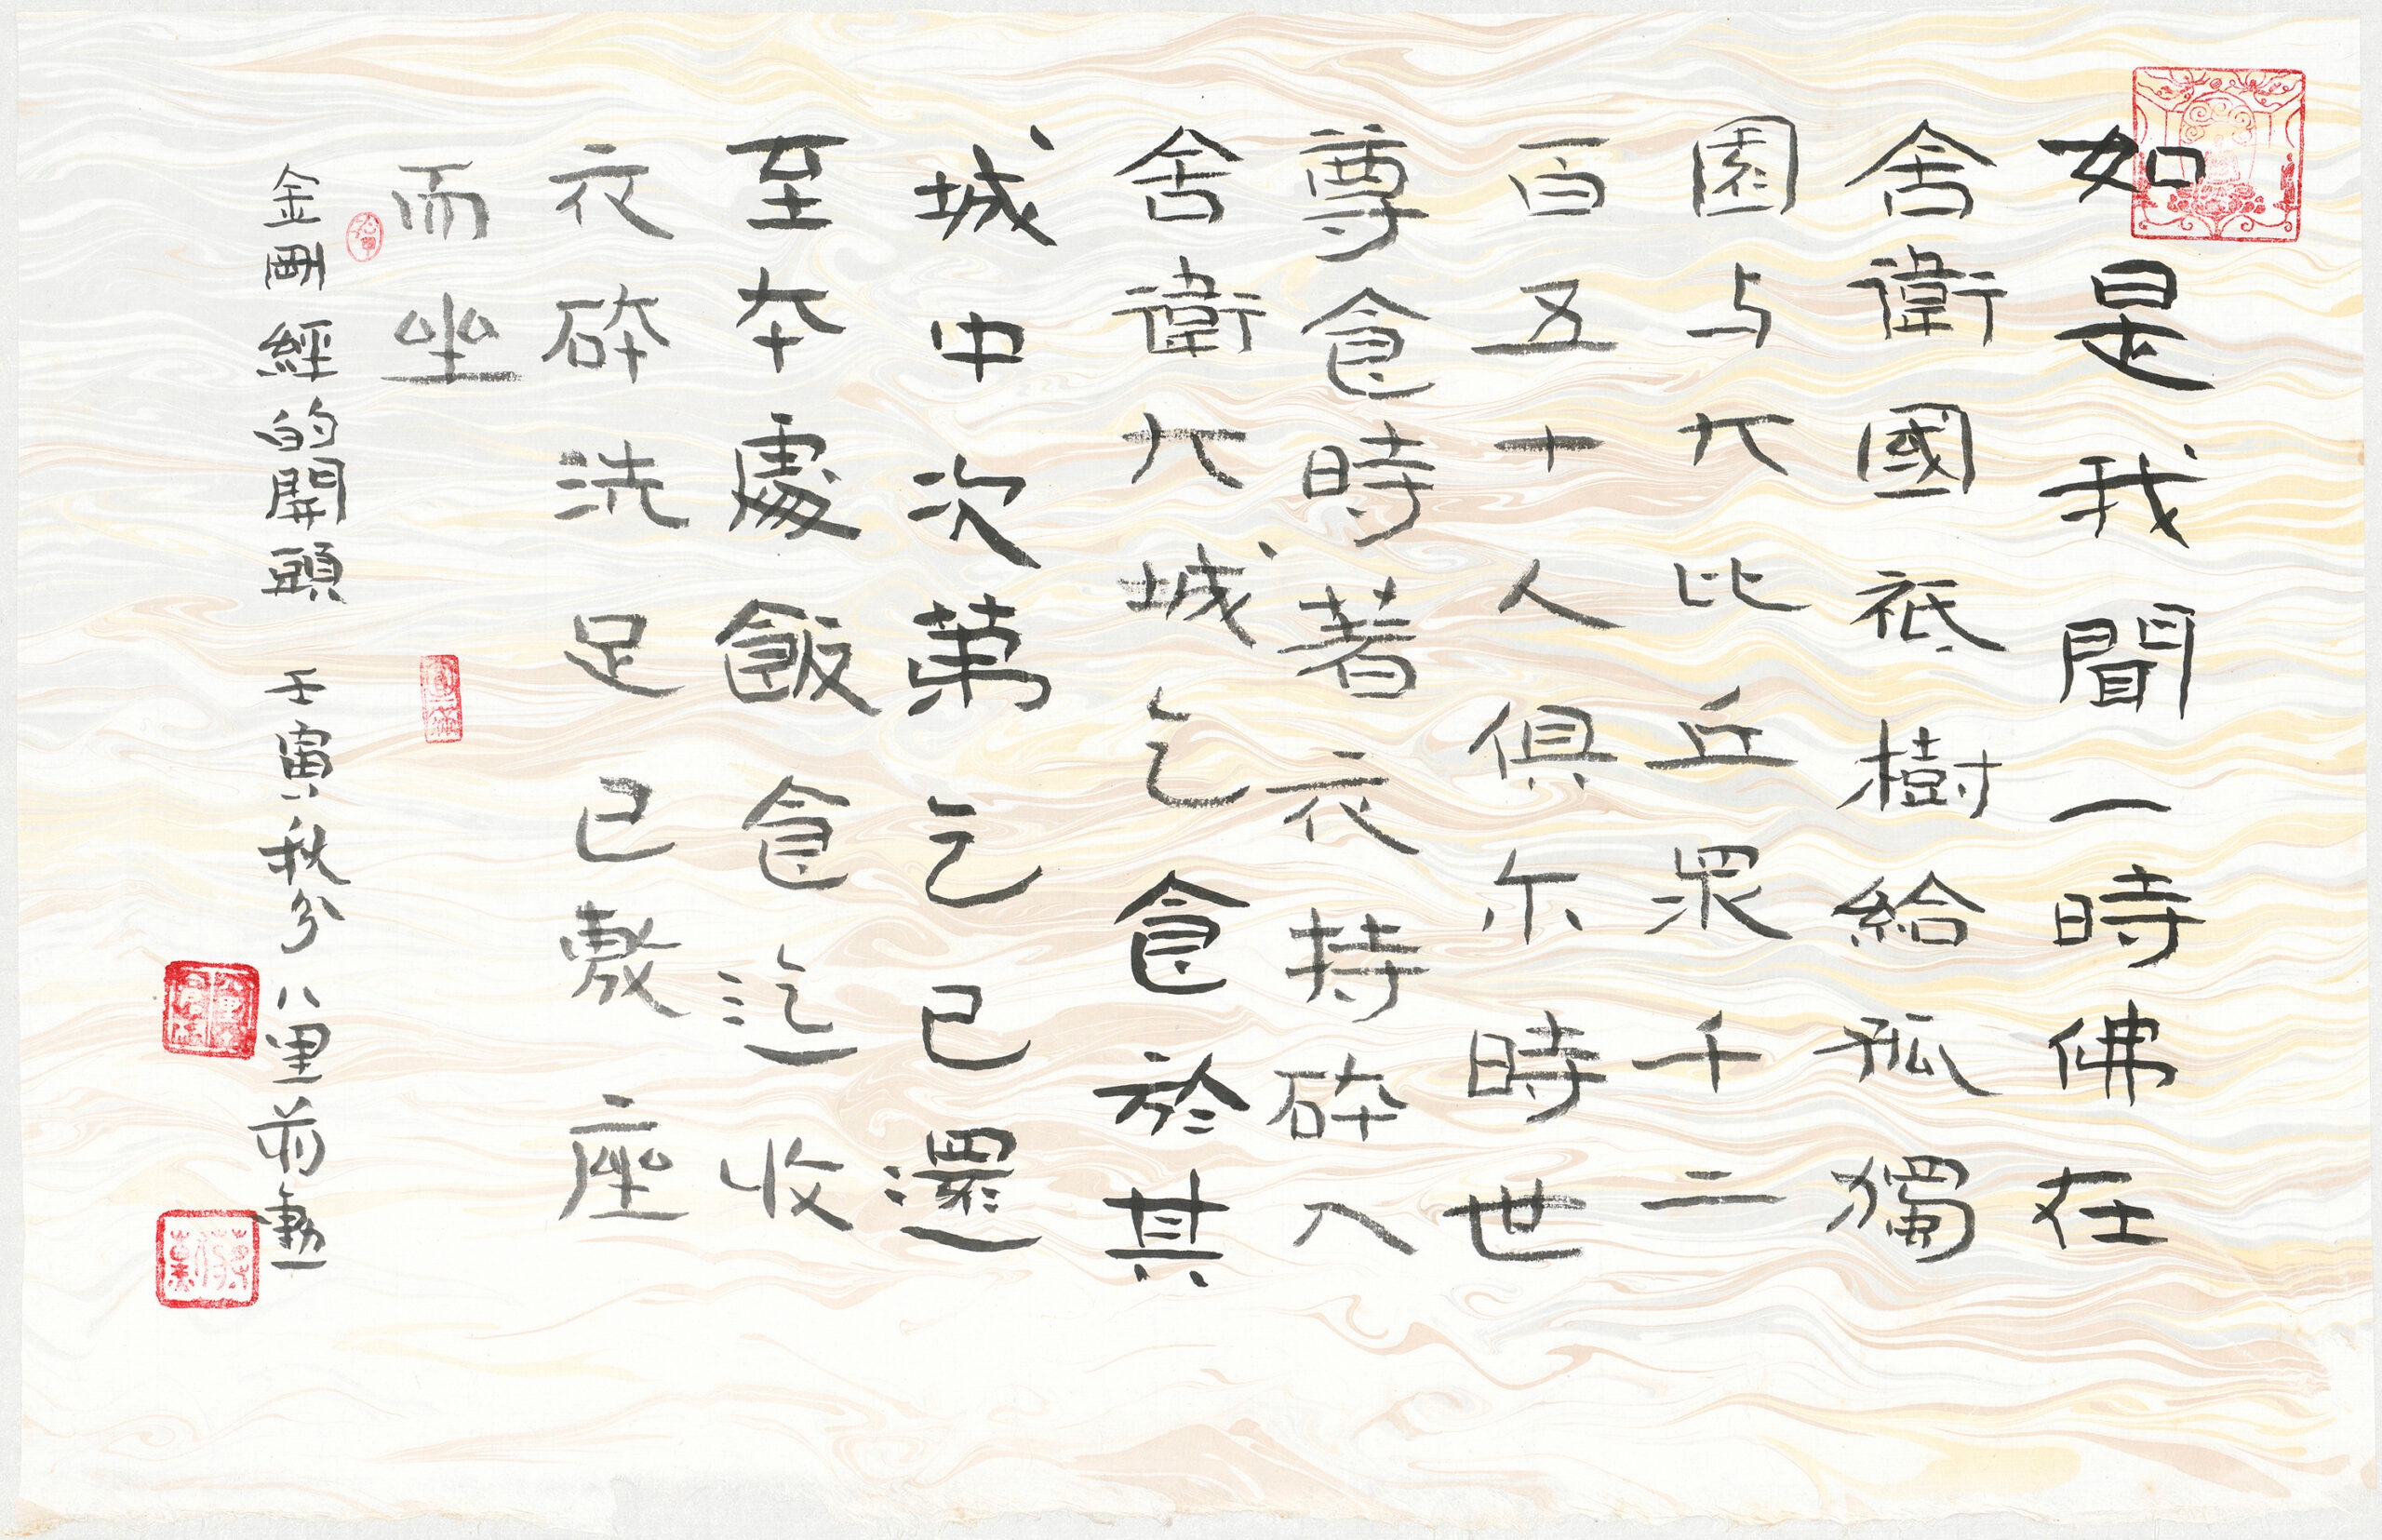 如是我聞一時佛在
舍衛國祇樹給孤獨
園与大比丘眾千二
百五十人俱尓時世
尊食時著衣持砵入
舍衛大城乞食於其
城中次第乞已還
至本處飯食迄收
衣砵洗足已敷座
而坐
金剛經的開頭 壬寅秋分 八里蔣勳
蔣勳